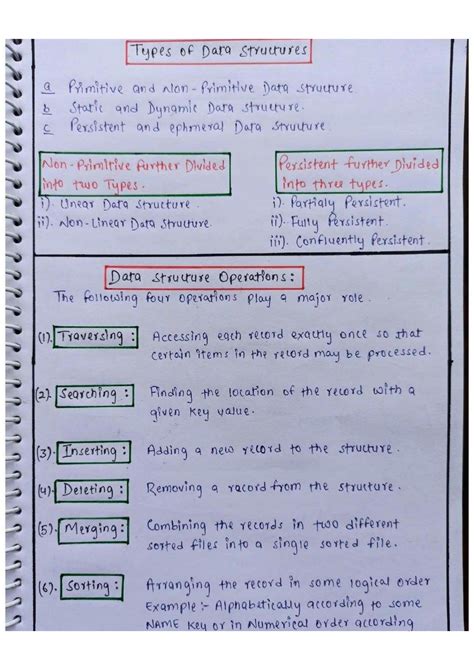 Types of Data Structures
a Primitive and Non-Primitive Data structure.
b Static and Dynamic Data structure.
c Persistent and ephmeral Data Structure.
Non-Primitive further Divided
into two Types.
i). Linear Data structure.
ii). Non-Linear Data structure.
Persistent further Divided
into three types.
i). Partialy Persistent.
ii). Fully Persistent.
iii). Confluently Persistent.
Data structure Operations:
The following four operations play a major role.
(1). Traversing: Accessing each record exactly once so that
certain items in the record may be processed.
(2). Searching: Finding the location of the record with a
given key value.
(3). Inserting: Adding a new record to the structure.
(4). Deleting: Removing a racord from the structure.
(5). Merging: Combining the records in two different
sorted files into a single sorted file.
(6). Sorting: Arranging the record in some logical order
Example:- Alphabetically according to some
NAME key or in Numerical order according